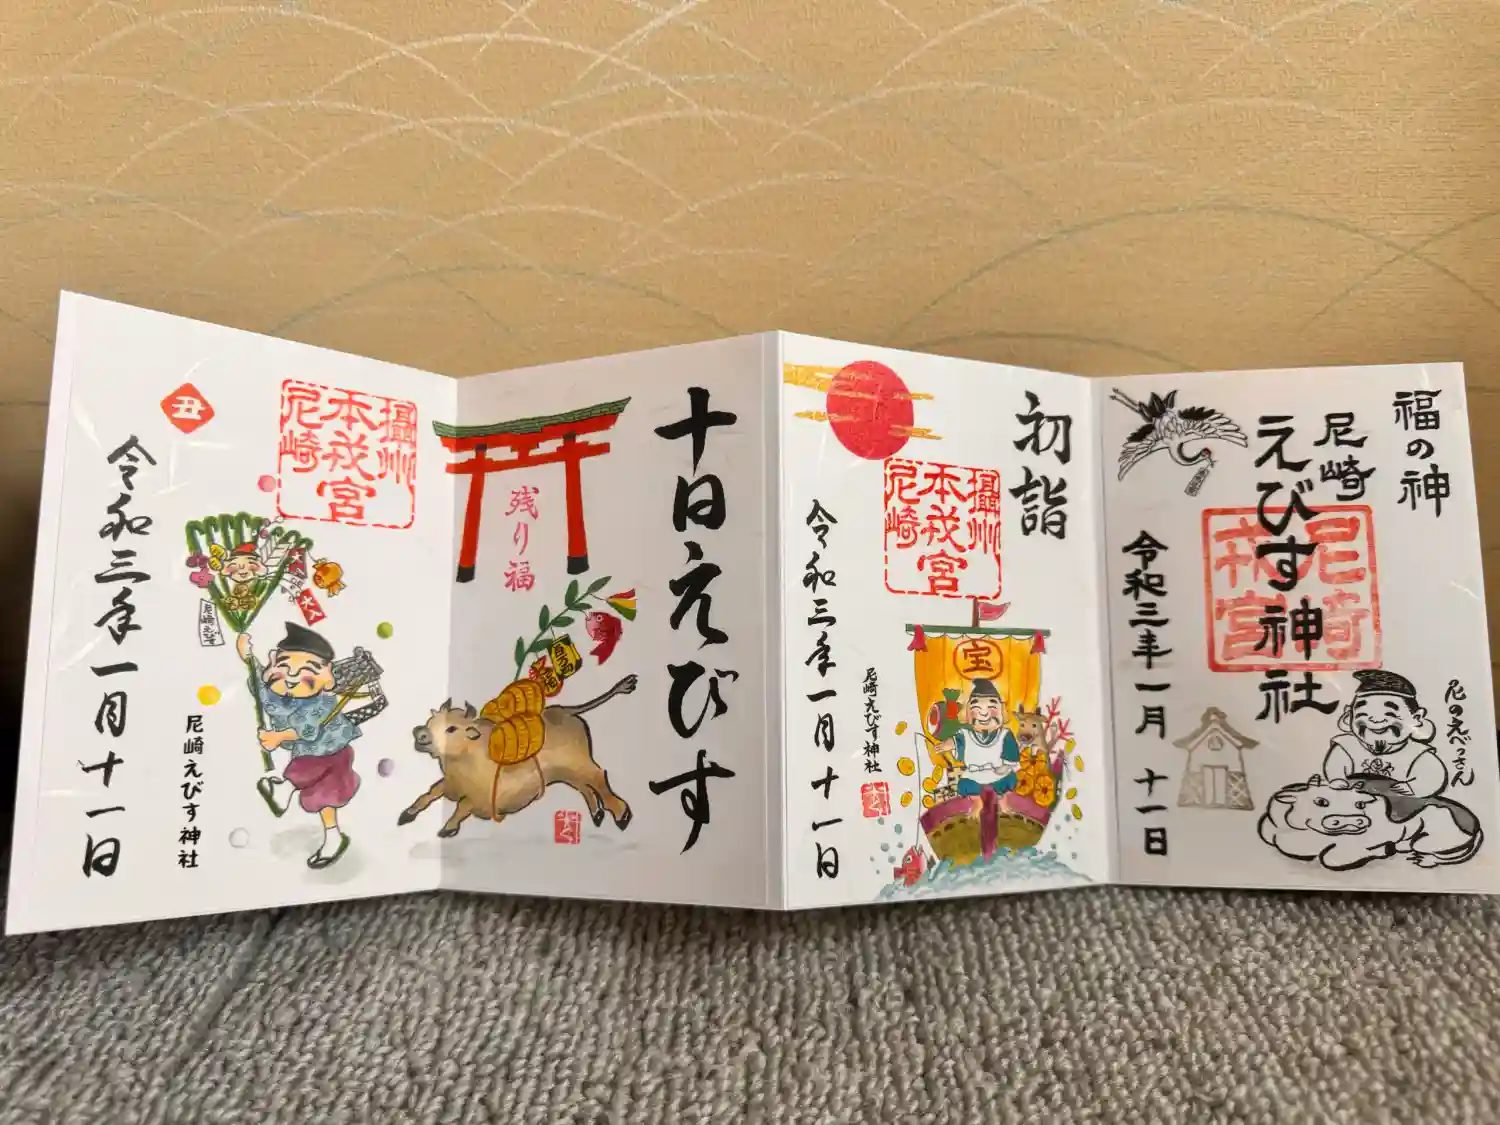 福の神
尼崎
えびす神社
尼崎
戎宮
令和三年一月十一日
尼のえべっさん
初詣
攝州
本戎宮
尼崎
宝
令和三年一月十一日
尼崎えびす神社
十日えびす
残り福
百万両
攝州
本戎宮
尼崎
丑
大入
尼崎えびす
令和三年一月十一日
尼崎えびす神社